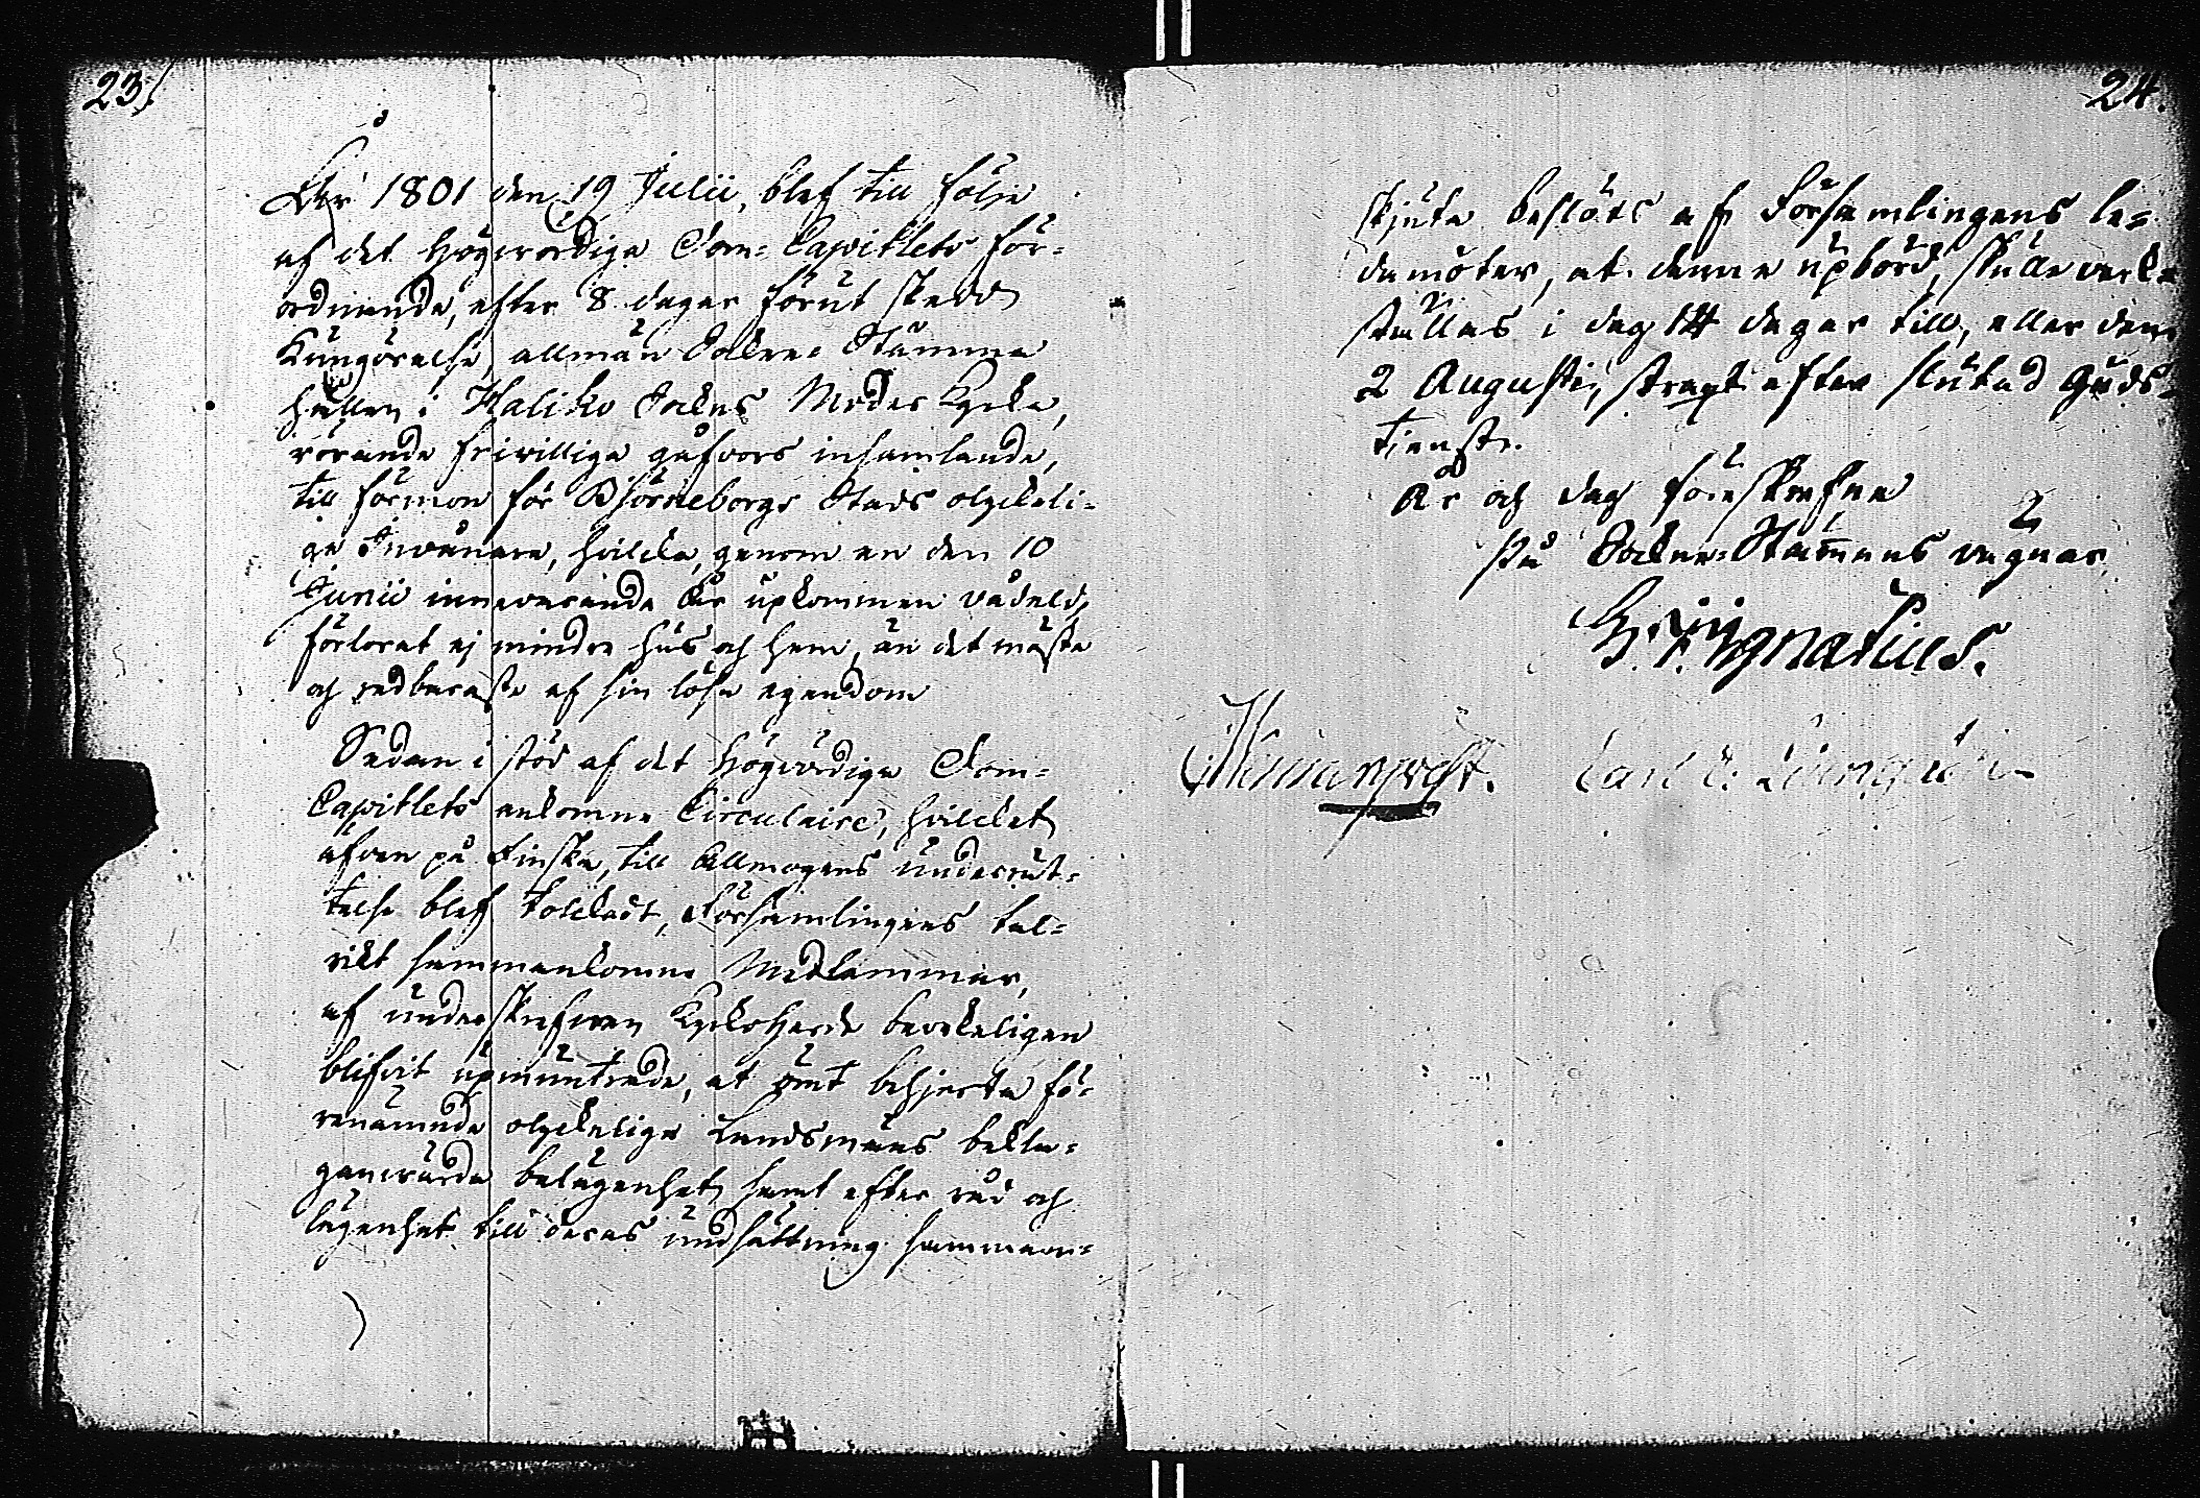 23./
År 1801 den 19 Julii, blef till följe
af det Högvördiga Dom-Capitlets för-
ordnande, efter 8 dagar förut skedd
Kungörelse, allmän Sockne-Stämma
hållen i Haliko Sockns Moder Kyrka,
rörande friwilliga gåfvors insamlande,
till förmon för Björneborgs Stads olyckeli-
ga Invånare, hvilcka, genom en den 10
Junii innevarande År upkommen vådeld,
förlorat ej mindre hus och hem, än det mästa
och redbaraste af sin lösa egendom
Sedan i stöd af det Högvördiga Dom-
Capitlets ankomne Circulaire, hvilcket
äfven på Finska, till Allmogens underrät-
telse blef tolckadt, Församlingens tal-
rikt sammankomne Medlemmar,
af underskrefven Kyrkoherde bevekeligen
blifvit upmuntrade, at ömt behjerta för-
renämnde olyckelige Landsmäns bekla-
gansvärda belägenhet, samt efter råd och
lägenhet till deras undsättning samman-
24.
skjuta beslöts af Församlingens le-
damöter, at denna upbörd, skulle verck-
ställas i dag 14 dagar till, eller den
2 Augusti, straxt efter slutad Guds-
tjenst.
År och dag föreskrefne
På Sockne-Stämmans vägnar
Ignatius.
Carl